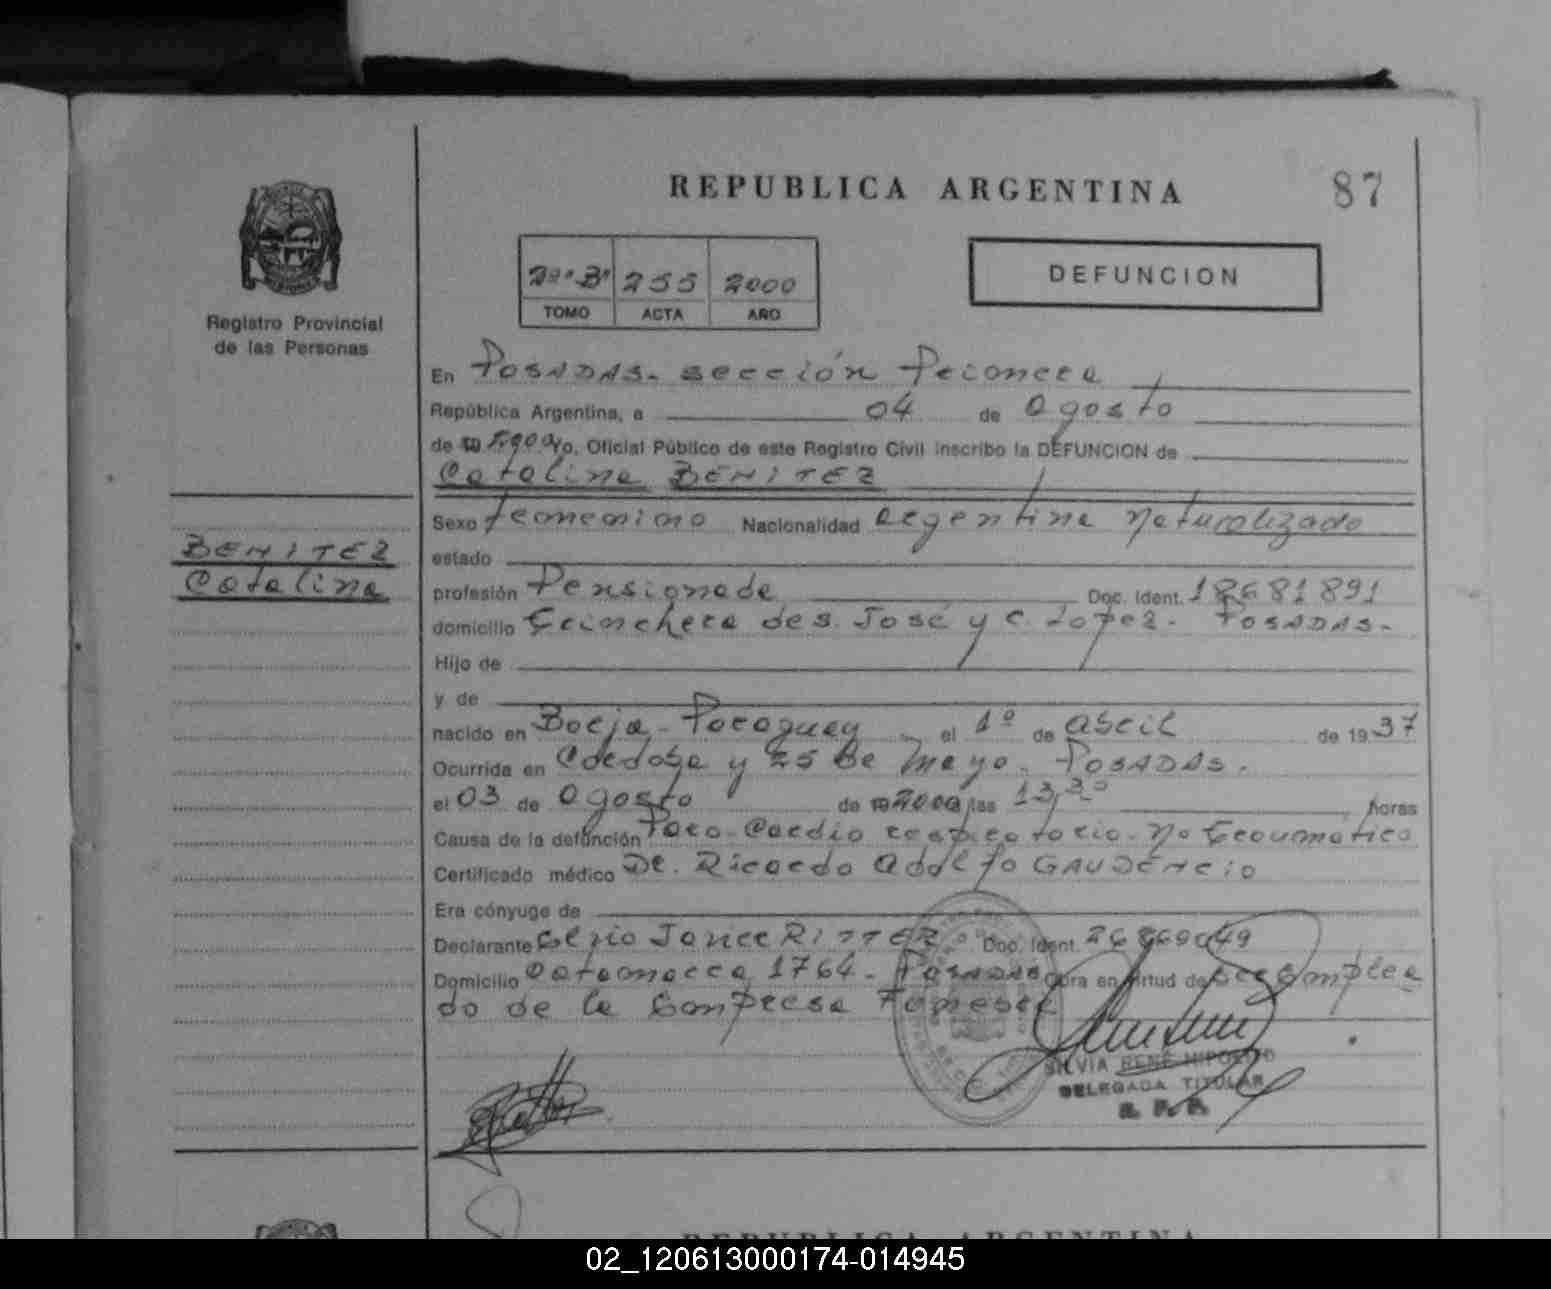 REPUBLICA ARGENTINA
87
2º "B" 255 2000
TOMO ACTA AÑO
DEFUNCION
Registro Provincial
de las Personas
En Posadas. sección Primera
República Argentina, a 04 de Agosto
de 2000 Yo, Oficial Público de este Registro Civil inscribo la DEFUNCION de
Catalina BENITEZ
Sexo femenino Nacionalidad argentina Naturalizada
BENITEZ
Catalina
estado
profesión Pensionada Doc. Ident. 18681891
domicilio Trinchera de S. José y C. Lopez. Posadas.
Hijo de
y de
nacido en Borja - Paraguay el 1º de abril de 1937
Ocurrida en Cordoba y 25 de Mayo. Posadas.
el 03 de Agosto de 2000 a las 13,30 horas
Causa de la defunción Paro-Cardio respiratorio. No Traumatico
Certificado médico Dr. Ricardo Adolfo GAUDENCIO
Era cónyuge de
Declarante RITTER Doc. Ident. 26869049
Domicilio Catamarca 1764 - Posadas Obra en virtud de ser emplea
do de la Empresa Funebre
SILVIA RENÉ HIPOLITO
DELEGADA TITULAR
R. P. P.
REPUBLICA ARGENTINA
02_120613000174-014945